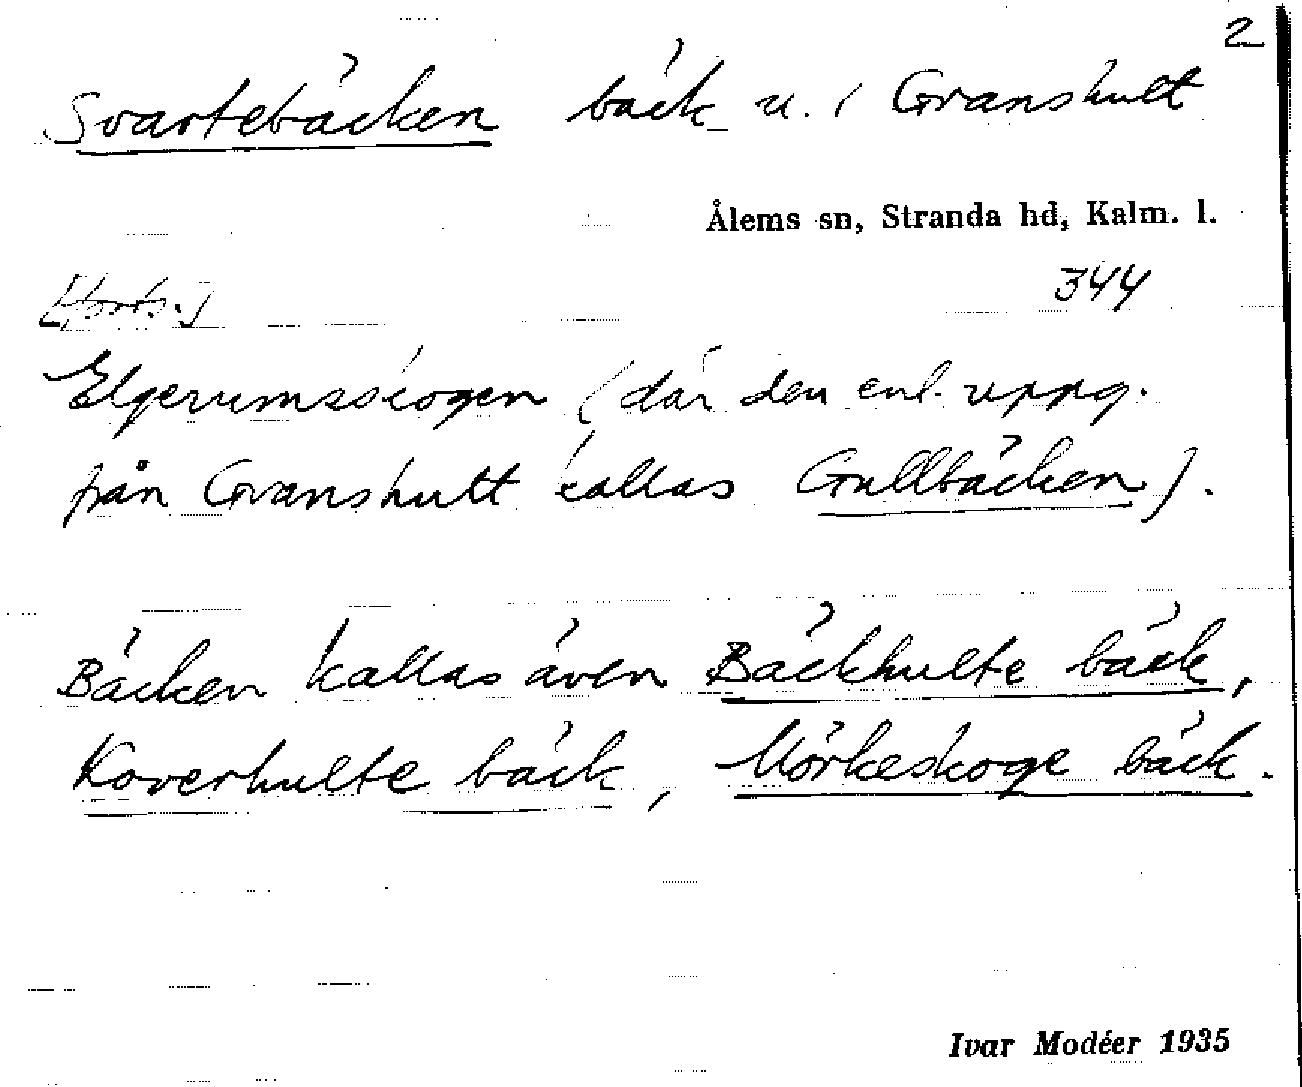 2
Svartebäcken bäck u. i Granshult
Ålems sn, Stranda hd, Kalm. l.
[Forts.] 344
Elgerumsskogen (där den enl. uppg.
från Granshult kallas Gullbäcken).
Bäcken kallas även Bäckhulte bäck,
Koverhulte bäck, Mörkeskoge bäck.
Ivar Modéer 1935